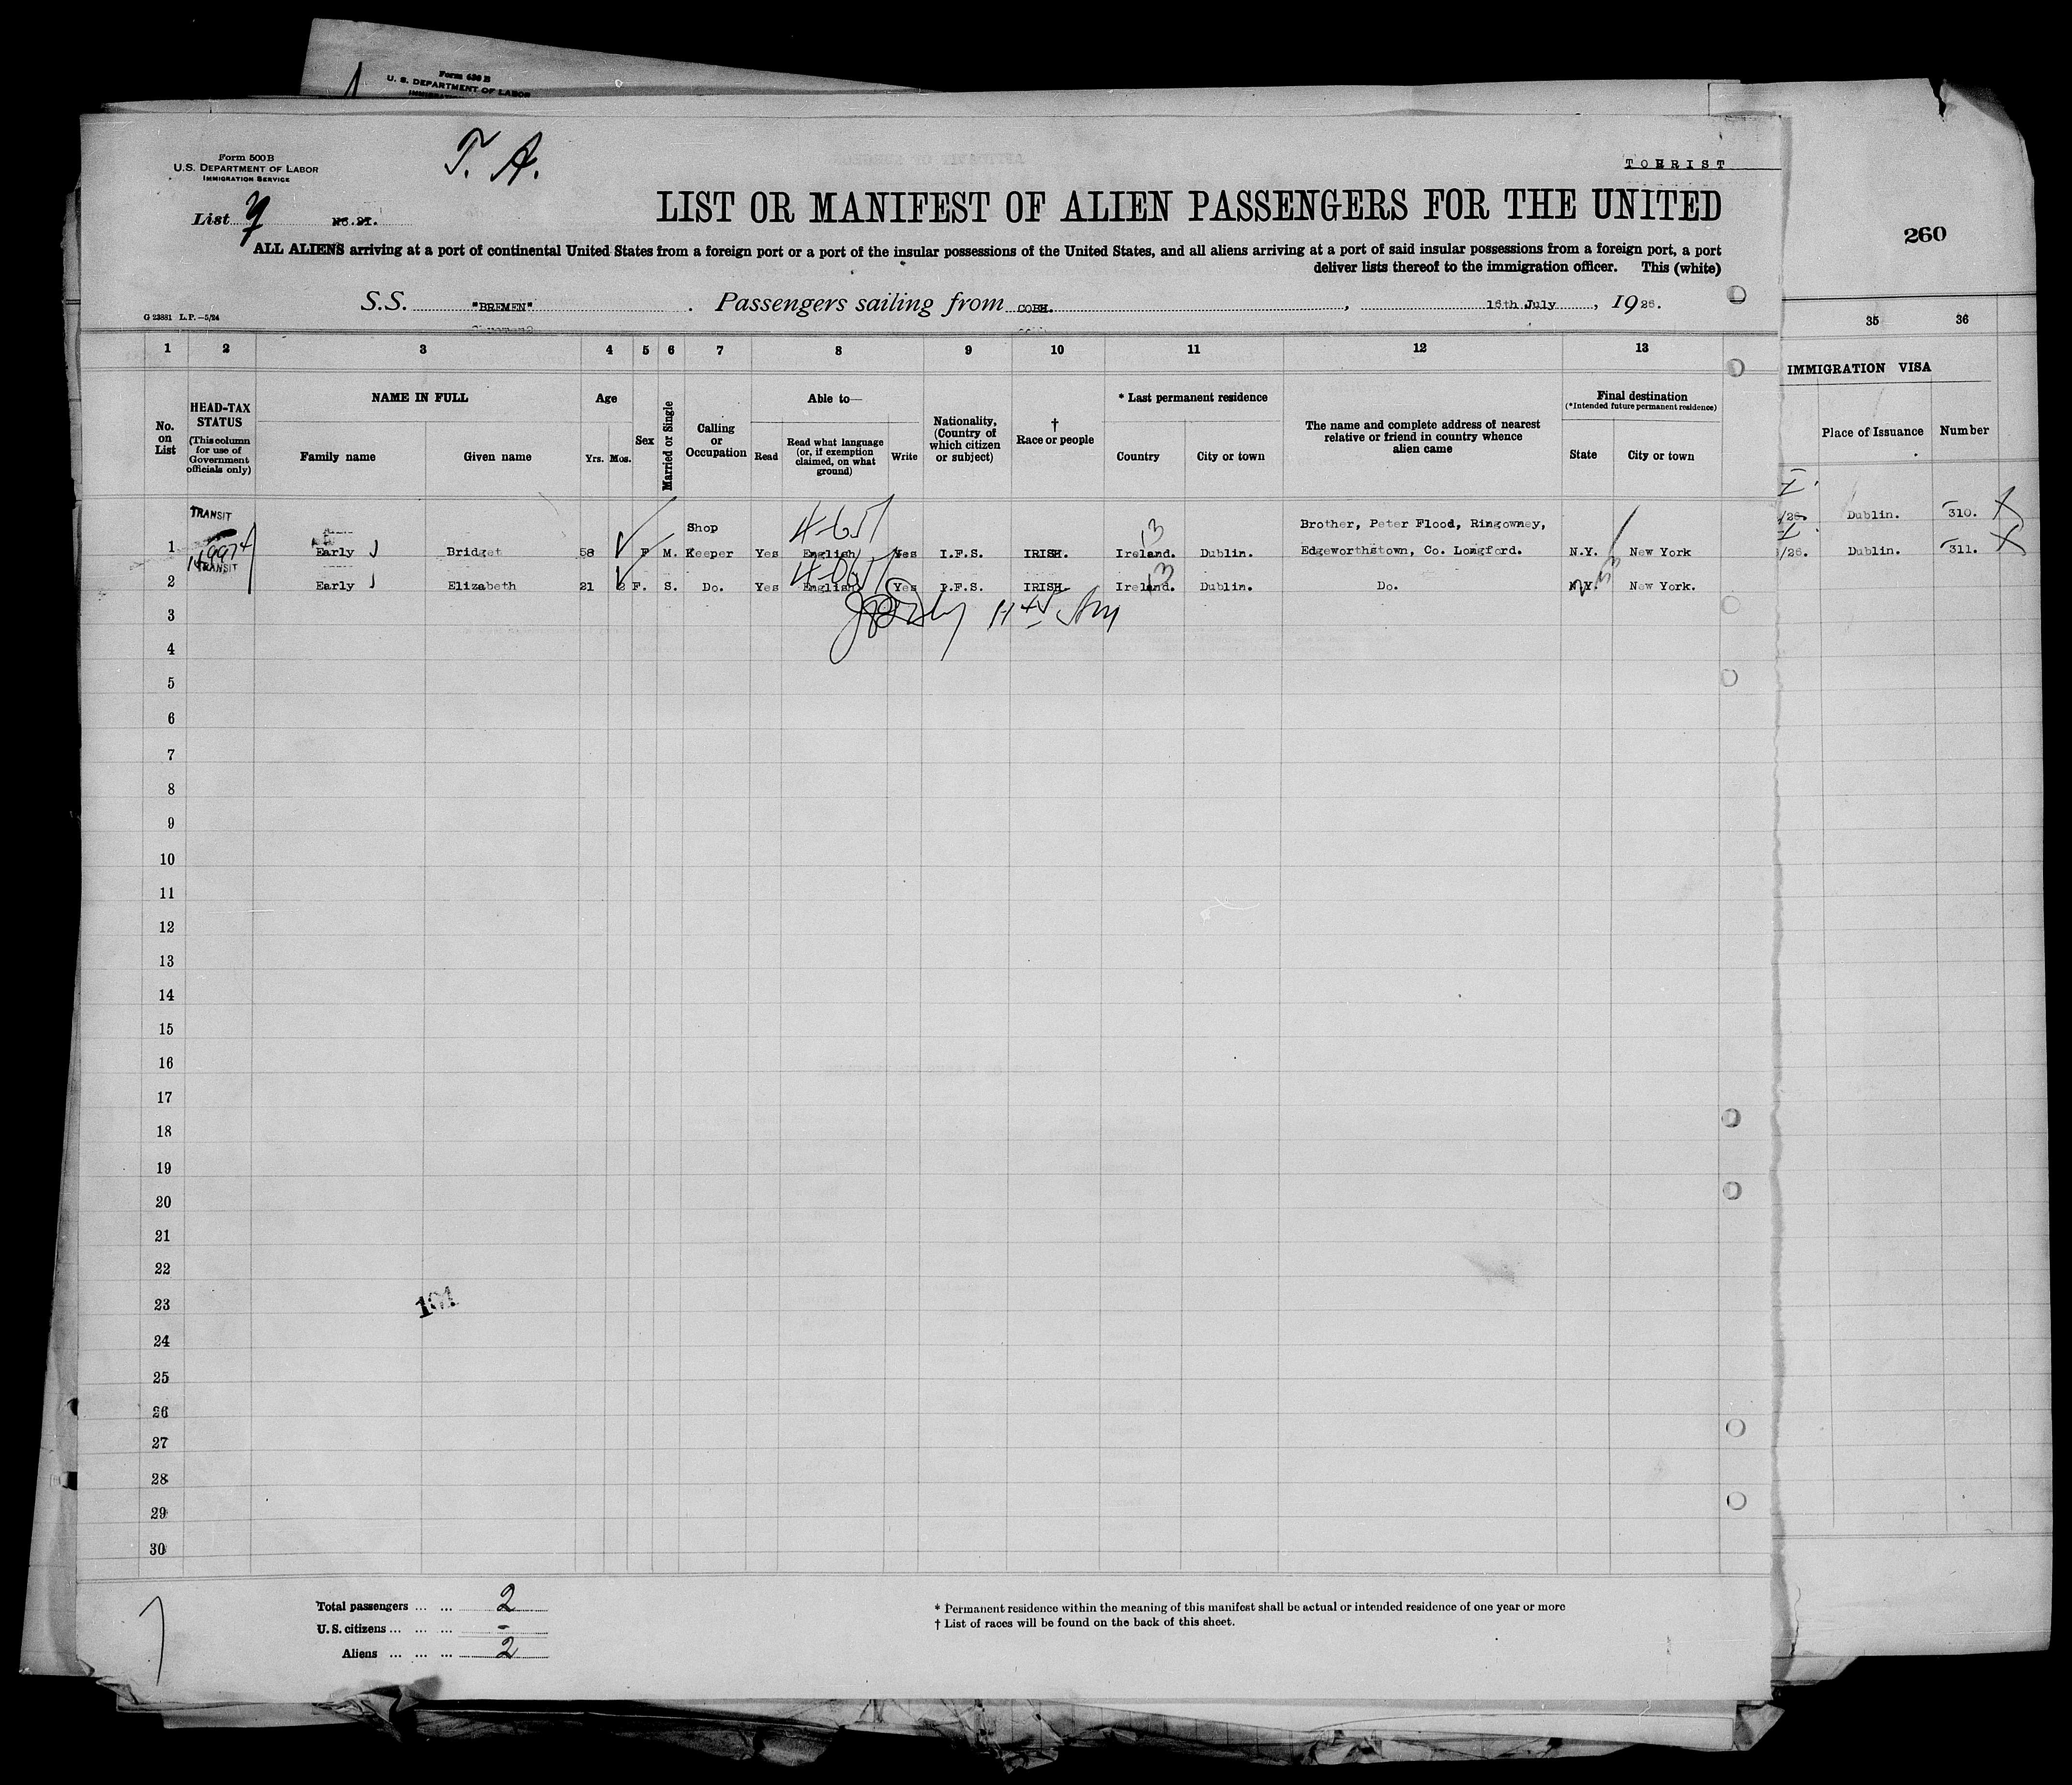 Form 430 B
U. S. DEPARTMENT OF LABOR
Form 500 B
U.S. DEPARTMENT OF LABOR
IMMIGRATION SERVICE
T. A.
TOURIST
List No. 21.
LIST OR MANIFEST OF ALIEN PASSENGERS FOR THE UNITED
260
ALL ALIENS arriving at a port of continental United States from a foreign port or a port of the insular possessions of the United States, and all aliens arriving at a port of said insular possessions from a foreign port, a port
deliver lists thereof to the immigration officer. This (white)
S.S. "BREMEN" . Passengers sailing from COBH. , 16th July , 1926.
G 23881 L.P.—5/24
1 2 3 4 5 6 7 8 9 10 11 12 13 35 36
IMMIGRATION VISA
No. on List
HEAD-TAX STATUS
(This column for use of Government officials only)
NAME IN FULL
Family name Given name
Age
Yrs. Mos.
Sex
Married or Single
Calling or Occupation
Able to—
Read
Read what language (or, if exemption claimed, on what ground)
Write
Nationality, (Country of which citizen or subject)
† Race or people
* Last permanent residence
Country City or town
The name and complete address of nearest relative or friend in country whence alien came
Final destination
(*Intended future permanent residence)
State City or town
Place of Issuance Number
TRANSIT
1 Early Bridget 58 F M. Shop Keeper Yes English Yes I.F.S. IRISH. Ireland. Dublin. Brother, Peter Flood, Ringowney, Edgeworthstown, Co. Longford. N.Y. New York /26. Dublin. 310.
TRANSIT
2 Early Elizabeth 21 2 F. S. Do. Yes English Yes I.F.S. IRISH Ireland. Dublin. Do. N.Y. New York. /26. Dublin. 311.
3
4
5
6
7
8
9
10
11
12
13
14
15
16
17
18
19
20
21
22
23
24
25
26
27
28
29
30
Total passengers ... ... 2
U. S. citizens ... ... ... -
Aliens ... ... ... 2
* Permanent residence within the meaning of this manifest shall be actual or intended residence of one year or more
† List of races will be found on the back of this sheet.